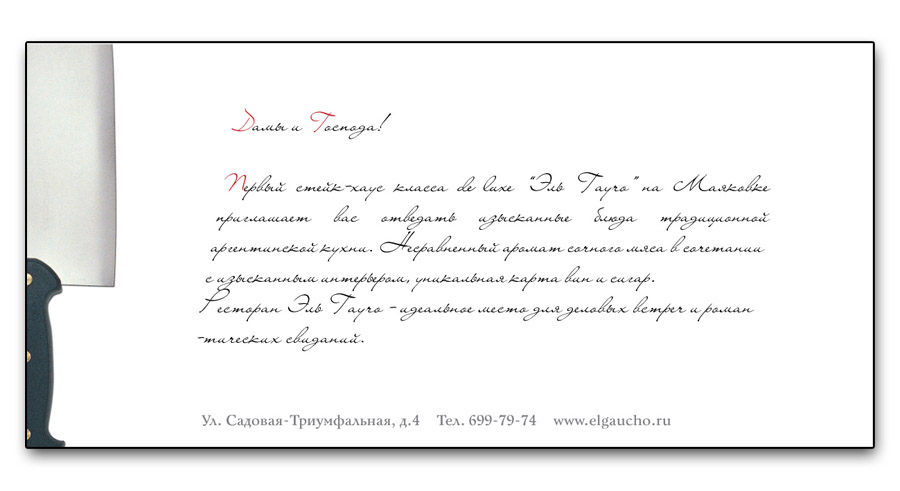 Дамы и Господа!
Первый стейк-хаус класса de luxe "Эль Гаучо" на Маяковке
приглашает вас отведать изысканные блюда традиционной
аргентинской кухни. Несравненный аромат сочного мяса в сочетании
с изысканным интерьером, уникальная карта вин и сигар.
Ресторан Эль Гаучо - идеальное место для деловых встреч и роман
-тических свиданий.
Ул. Садовая-Триумфальная, д.4 Тел. 699-79-74 www.elgaucho.ru